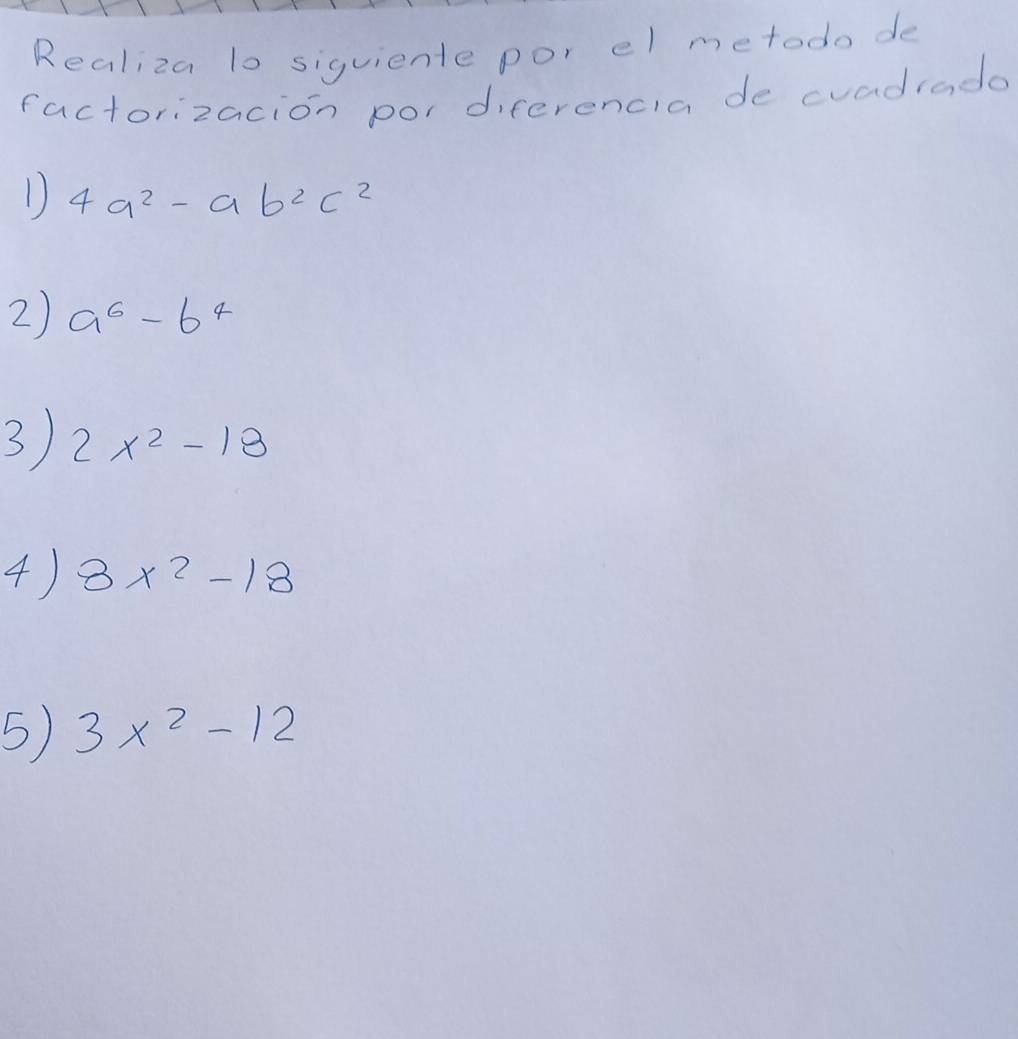 Realiza lo siguiente por el metodo de
factorización por diferencia de cuadrado
1) 4a² - ab²c²
2) a⁶ - b⁴
3) 2x² - 18
4) 8x² - 18
5) 3x² - 12